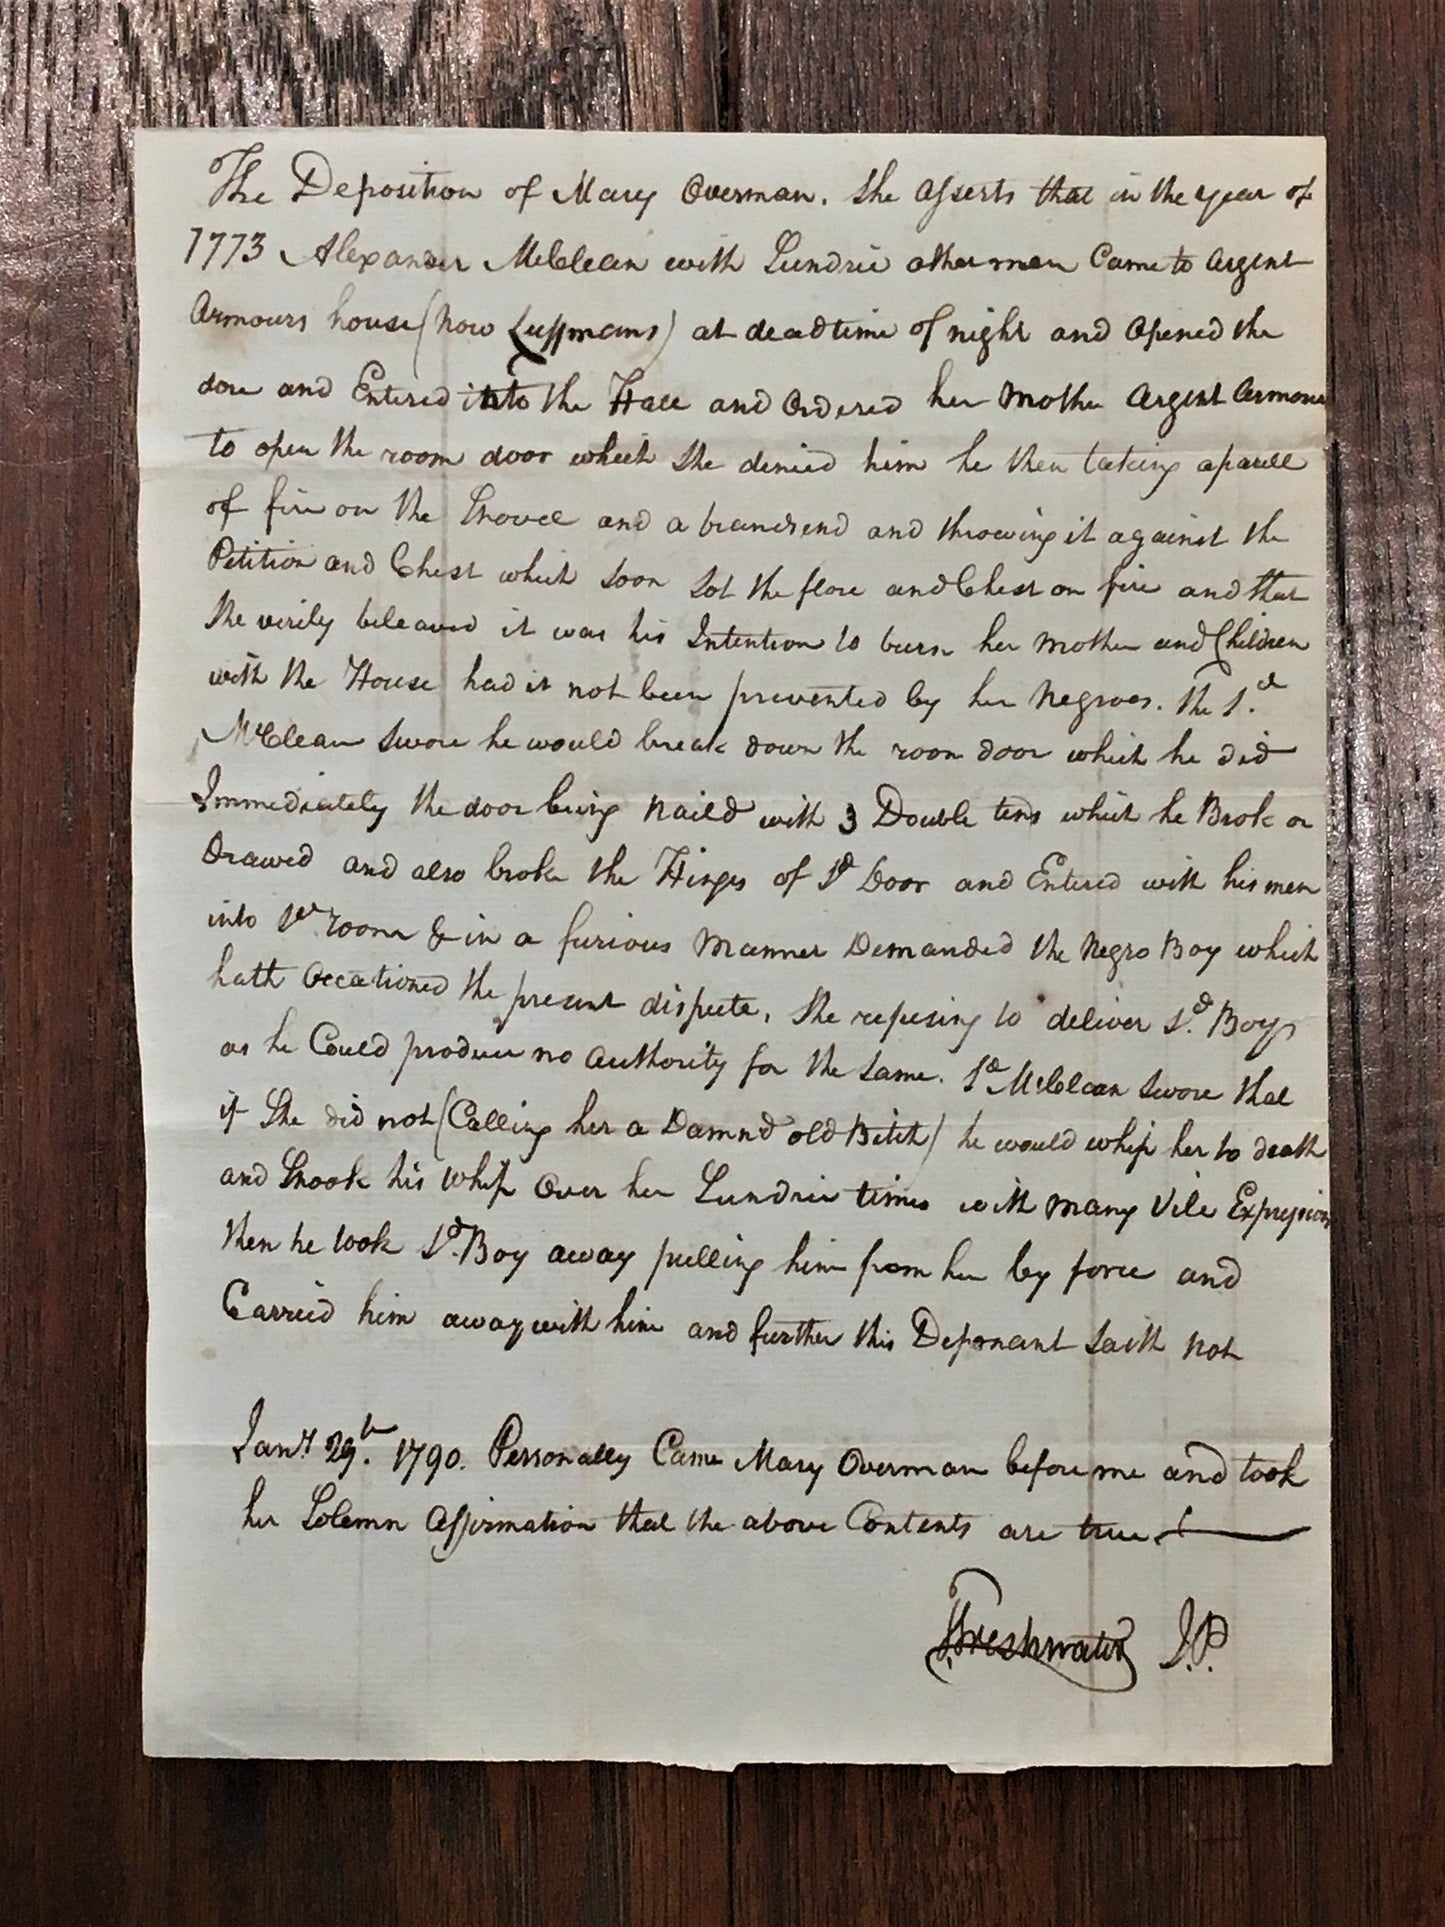 The Deposition of Mary Overman. She Asserts that in the year of
1773 Alexander McClean with Sundrie other men Came to Argent
Armours house (now Luffmans) at dead time of night and opened the
dore and Entered into the Hall and Ordered her Mother Argent Armour
to open the room door which she denied him he then taking a parcell
of fire on the Shovel and a brandsend and throwing it against the
Petition and Chest which soon Sot the flore and Chest on fire and that
She verily beleaved it was his Intention to burn her mother and Children
with the House had it not been prevented by her Negroes. The Sd.
McClean Swore he would break down the room door which he did
Immediately the door being Naild with 3 Double tens which he Brok or
Drawed and also broke the Hinges of Sd Door and Entered with his men
into Sd room & in a furious Manner Demanded the Negro Boy which
hath Occationed the present dispute, She refusing to deliver Sd. Boy
as he Could produce no Authority for the Same. Sd McClean Swore that
if She did not (Calling her a Damnd old Bitch) he would whip her to death
and Shook his Whip Over her Sundrie times with many Vile Expressions
then he took Sd. Boy away pulling him from her by force and
Carried him away with him and further this Deponant Saith not
Jany 29th. 1790. Personally Came Mary Overman before me and took
her Solemn Affirmation that the above Contents are true
Freshwater J.P.